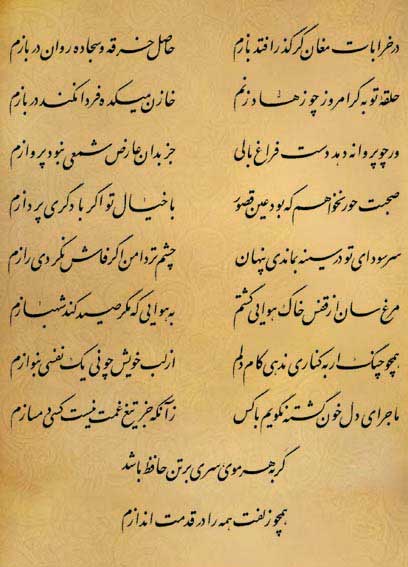 در خرابات مغان گر گذر افتد بازم حاصل خرقه و سجاده روان دربازم
حلقه توبه گر امروز چو زهاد زنم خازن میکده فردا نکند در بازم
ور چو پروانه دهد دست فراغ بالی جز بدان عارض شمعی نبود پروازم
صحبت حور نخواهم که بود عین قصور با خیال تو اگر با دگری پردازم
سر سودای تو در سینه بماندی پنهان چشم تردامن اگر فاش نکردی رازم
مرغ سان از قفس خاک هوایی گشتم به هوایی که مگر صید کند شهبازم
همچو چنگ ار به کناری ندهی کام دلم از لب خویش چو نی یک نفسی بنوازم
ماجرای دل خون گشته نگویم با کس زآنکه جز تیغ غمت نیست کسی دمسازم
گر به هر موی سری بر تن حافظ باشد
همچو زلفت همه را در قدمت اندازم